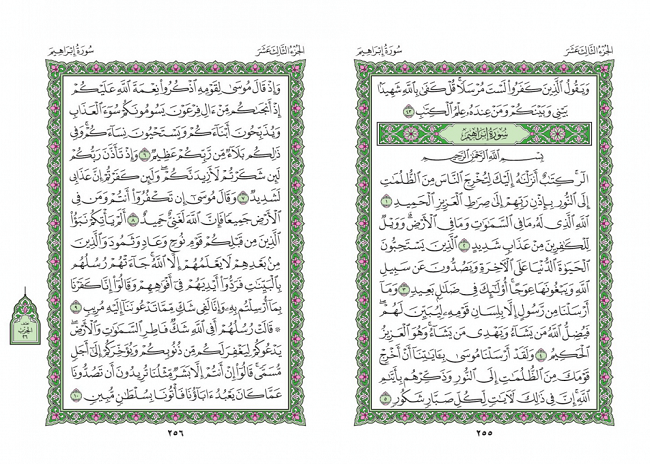 الجزء الثالث عشر
سورة إبراهيم
وَيَقُولُ ٱلَّذِينَ كَفَرُوا۟ لَسْتَ مُرْسَلًا ۚ قُلْ كَفَىٰ بِٱللَّهِ شَهِيدًۢا
بَيْنِى وَبَيْنَكُمْ وَمَنْ عِندَهُۥ عِلْمُ ٱلْكِتَٰبِ ٤٣
سورة إبراهيم
بِسْمِ ٱللَّهِ ٱلرَّحْمَٰنِ ٱلرَّحِيمِ
الٓر ۚ كِتَٰبٌ أَنزَلْنَٰهُ إِلَيْكَ لِتُخْرِجَ ٱلنَّاسَ مِنَ ٱلظُّلُمَٰتِ
إِلَى ٱلنُّورِ بِإِذْنِ رَبِّهِمْ إِلَىٰ صِرَٰطِ ٱلْعَزِيزِ ٱلْحَمِيدِ ١
ٱللَّهِ ٱلَّذِى لَهُۥ مَا فِى ٱلسَّمَٰوَٰتِ وَمَا فِى ٱلْأَرْضِ ۗ وَوَيْلٌ
لِّلْكَٰفِرِينَ مِنْ عَذَابٍ شَدِيدٍ ٢ ٱلَّذِينَ يَسْتَحِبُّونَ
ٱلْحَيَوٰةَ ٱلدُّنْيَا عَلَى ٱلْءَاخِرَةِ وَيَصُدُّونَ عَن سَبِيلِ
ٱللَّهِ وَيَبْغُونَهَا عِوَجًا ۚ أُو۟لَٰٓئِكَ فِى ضَلَٰلٍۭ بَعِيدٍ ٣ وَمَآ
أَرْسَلْنَا مِن رَّسُولٍ إِلَّا بِلِسَانِ قَوْمِهِۦ لِيُبَيِّنَ لَهُمْ ۖ
فَيُضِلُّ ٱللَّهُ مَن يَشَآءُ وَيَهْدِى مَن يَشَآءُ ۚ وَهُوَ ٱلْعَزِيزُ
ٱلْحَكِيمُ ٤ وَلَقَدْ أَرْسَلْنَا مُوسَىٰ بِـَٔايَٰتِنَآ أَنْ أَخْرِجْ
قَوْمَكَ مِنَ ٱلظُّلُمَٰتِ إِلَى ٱلنُّورِ وَذَكِّرْهُم بِأَيَّىٰمِ
ٱللَّهِ ۚ إِنَّ فِى ذَٰلِكَ لَءَايَٰتٍ لِّكُلِّ صَبَّارٍ شَكُورٍ ٥
٢٥٥
الجزء الثالث عشر
سورة إبراهيم
وَإِذْ قَالَ مُوسَىٰ لِقَوْمِهِ ٱذْكُرُوا۟ نِعْمَةَ ٱللَّهِ عَلَيْكُمْ
إِذْ أَنجَىٰكُم مِّنْ ءَالِ فِرْعَوْنَ يَسُومُونَكُمْ سُوٓءَ ٱلْعَذَابِ
وَيُذَبِّحُونَ أَبْنَآءَكُمْ وَيَسْتَحْيُونَ نِسَآءَكُمْ ۚ وَفِى
ذَٰلِكُم بَلَآءٌ مِّن رَّبِّكُمْ عَظِيمٌ ٦ وَإِذْ تَأَذَّنَ رَبُّكُمْ
لَئِن شَكَرْتُمْ لَأَزِيدَنَّكُمْ ۖ وَلَئِن كَفَرْتُمْ إِنَّ عَذَابِى
لَشَدِيدٌ ٧ وَقَالَ مُوسَىٰٓ إِن تَكْفُرُوٓا۟ أَنتُمْ وَمَن فِى
ٱلْأَرْضِ جَمِيعًا فَإِنَّ ٱللَّهَ لَغَنِىٌّ حَمِيدٌ ٨ أَلَمْ يَأْتِكُمْ نَبَؤُا۟
ٱلَّذِينَ مِن قَبْلِكُمْ قَوْمِ نُوحٍ وَعَادٍ وَثَمُودَ ۛ وَٱلَّذِينَ
مِنۢ بَعْدِهِمْ ۛ لَا يَعْلَمُهُمْ إِلَّا ٱللَّهُ ۚ جَآءَتْهُمْ رُسُلُهُم
بِٱلْبَيِّنَٰتِ فَرَدُّوٓا۟ أَيْدِيَهُمْ فِىٓ أَفْوَٰهِهِمْ وَقَالُوٓا۟ إِنَّا كَفَرْنَا
بِمَآ أُرْسِلْتُم بِهِۦ وَإِنَّا لَفِى شَكٍّ مِّمَّا تَدْعُونَنَآ إِلَيْهِ مُرِيبٍ ٩
۞ قَالَتْ رُسُلُهُمْ أَفِى ٱللَّهِ شَكٌّ فَاطِرِ ٱلسَّمَٰوَٰتِ وَٱلْأَرْضِ ۖ
يَدْعُوكُمْ لِيَغْفِرَ لَكُم مِّن ذُنُوبِكُمْ وَيُؤَخِّرَكُمْ إِلَىٰٓ أَجَلٍ
مُّسَمًّى ۚ قَالُوٓا۟ إِنْ أَنتُمْ إِلَّا بَشَرٌ مِّثْلُنَا تُرِيدُونَ أَن تَصُدُّونَا
عَمَّا كَانَ يَعْبُدُ ءَابَآؤُنَا فَأْتُونَا بِسُلْطَٰنٍ مُّبِينٍ ١٠
الحزب
٢٦
٢٥٦